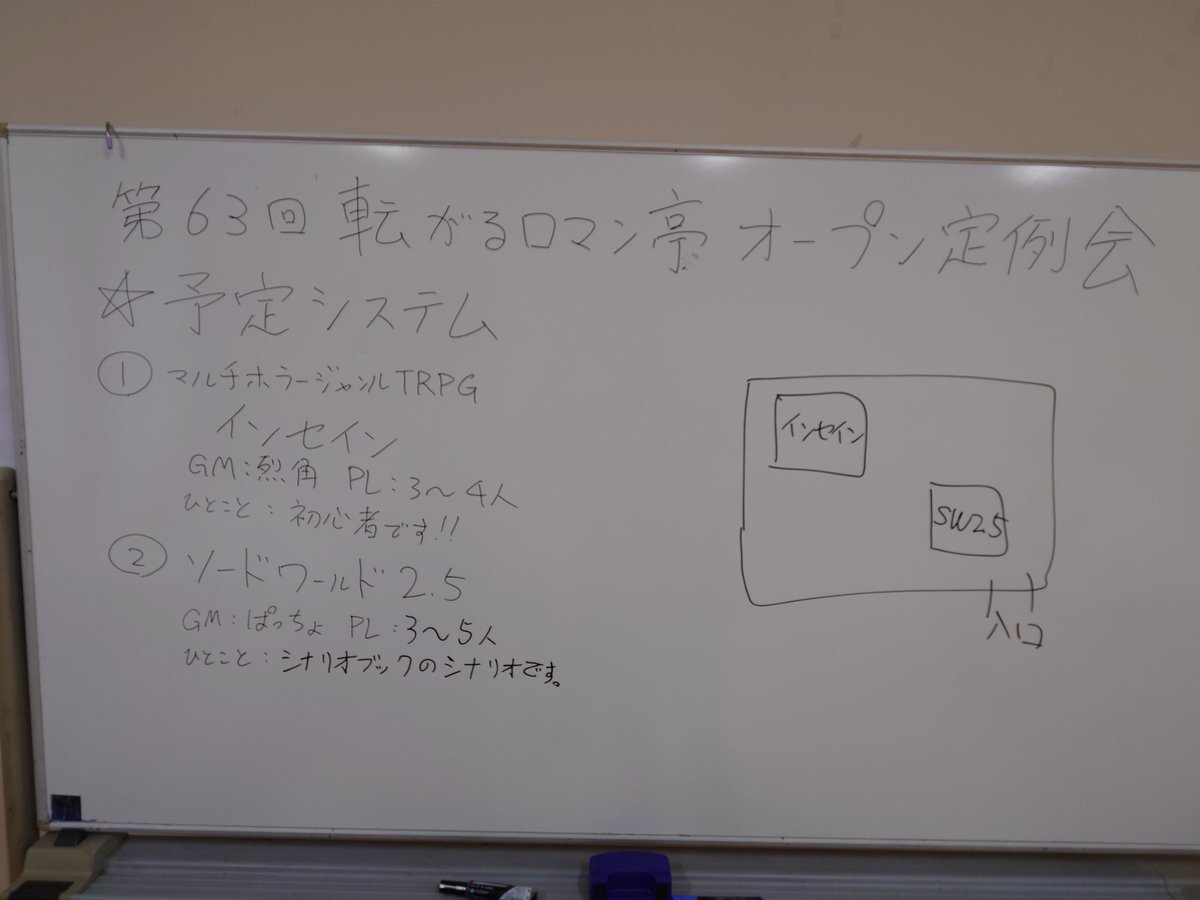 第63回 転がるロマン亭 オープン定例会
☆予定システム
① マルチホラージャンルTRPG
インセイン
GM:烈角 PL:3〜4人
ひとこと:初心者です!!
② ソードワールド2.5
GM:ぱっちょ PL:3〜5人
ひとこと:シナリオブックのシナリオです。
インセイン
SW2.5
入口